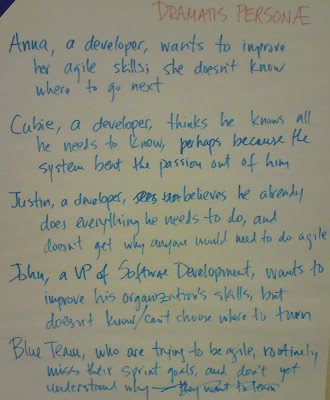 DRAMATIS PERSONÆ
Anna, a developer, wants to improve
her agile skills; she doesn't know
where to go next
Cubie, a developer, thinks he knows all
he needs to know, perhaps because the
system beat the passion out of him
Justin, a developer, believes he already
does everything he needs to do, and
doesn't get why anyone would need to do agile
John, a VP of Software Development, wants to
improve his organization's skills, but
doesn't know/can't choose where to turn
Blue Team, who are trying to be agile, routinely
miss their sprint goals, and don't get
understand why they want to learn